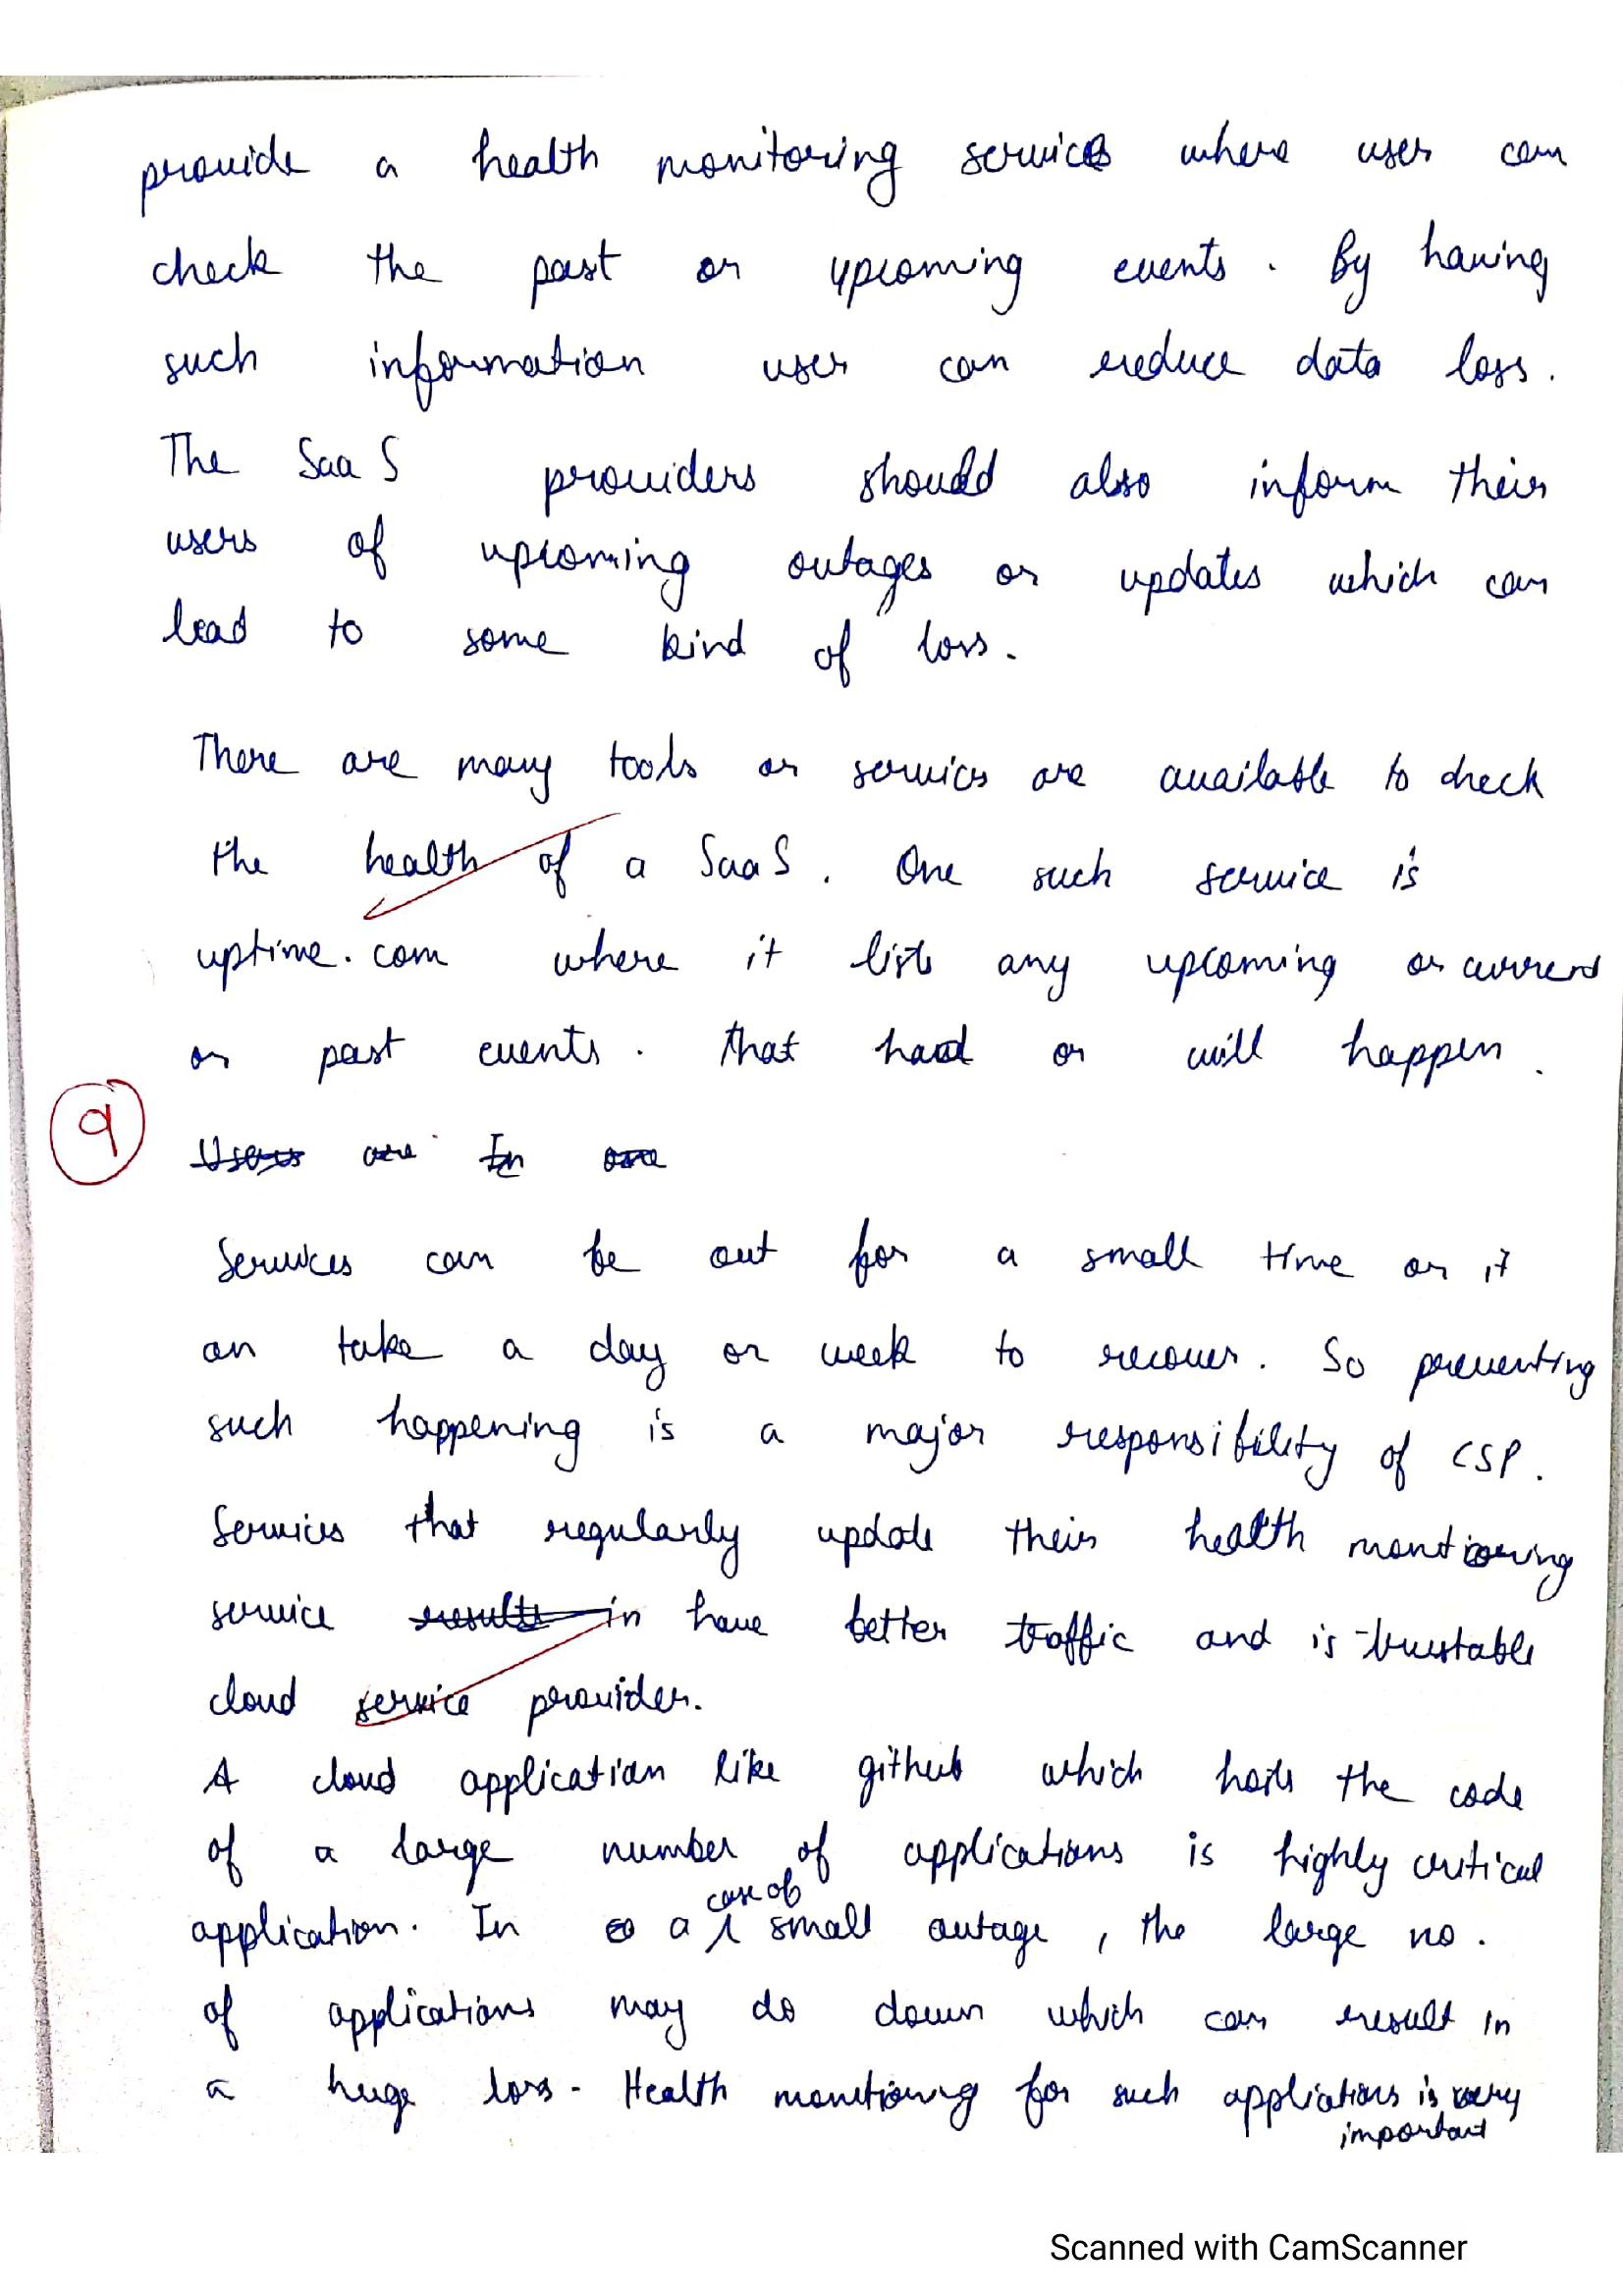 provide a health monitoring service where user can
check the past or upcoming events. By having
such information user can reduce data loss.
The SaaS providers should also inform their
users of upcoming outages or updates which can
lead to some kind of loss.
There are many tools or services are available to check
the health of a SaaS. One such service is
uptime.com where it lists any upcoming or current
or past events. that had or will happen.
9
Users are In
Services can be out for a small time or it
an take a day or week to recover. So preventing
such happening is a major responsibility of CSP.
Services that regularly update their health
service results in have better traffic and is trustable
cloud service provider.
A cloud application like github which hosts the code
of a large number of applications is highly critical
application. In a case of small outage, the large no.
of applications may do down which can result in
a huge loss. Health for such is very
important
Scanned with CamScanner